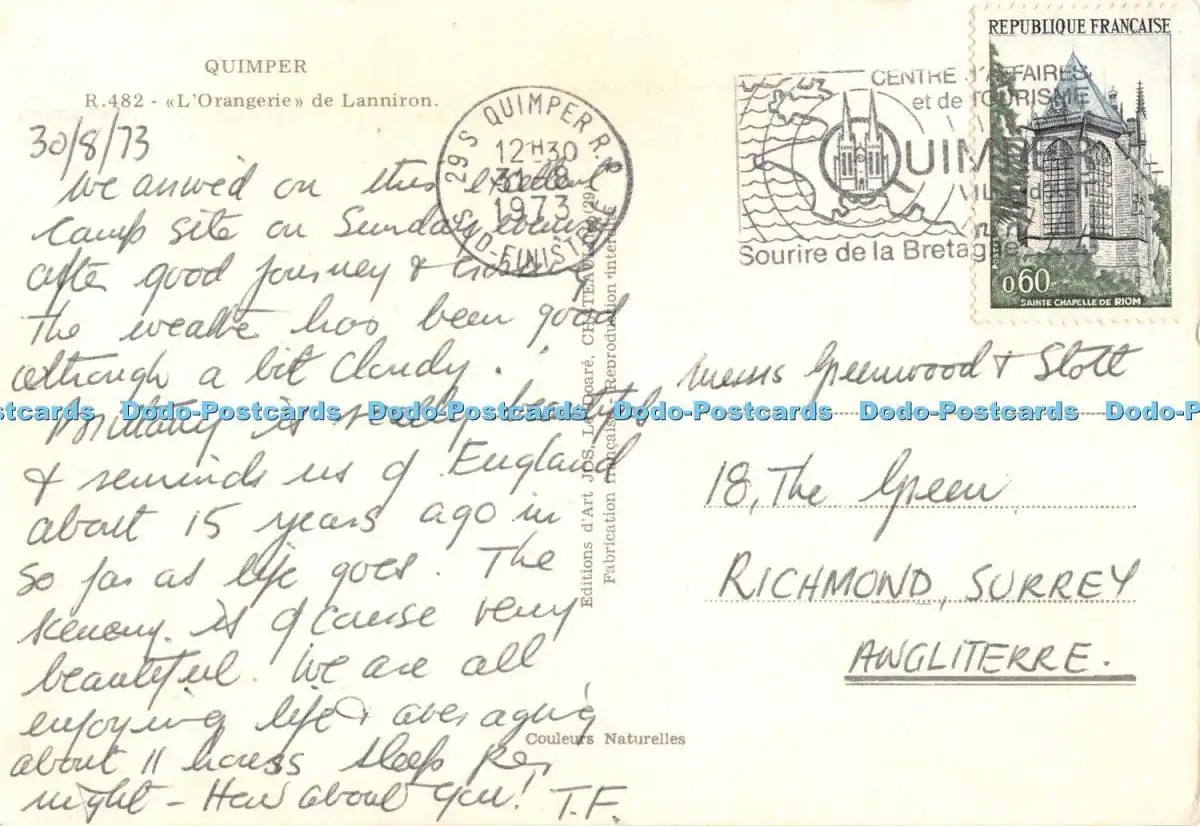 QUIMPER
R.482 - «L'Orangerie» de Lanniron.
30/8/73
We arrived on this excellent
camp site on Sunday evening
after good journey & crossing
The weather has been good
although a bit cloudy.
Brittany is really beautiful
& reminds us of England
about 15 years ago in
so far as life goes. The
scenery is of course very
beautiful. We are all
enjoying life & averaging
about 11 hours sleep per
night - How about you! T.F.
29 S QUIMPER R.P.
12H30
31-8
1973
SUD-FINISTERE
CENTRE D'AFFAIRES
et de TOURISME
QUIMPER
VILLE d'ART
Sourire de la Bretagne
REPUBLIQUE FRANÇAISE
POSTES
0,60
SAINTE CHAPELLE DE RIOM
Editions d'Art JOS, Le Doaré, CHATEAULIN (29)
Fabrication française Reproduction interdite
Messrs Greenwood & Stott
18, The Green
RICHMOND, SURREY
ANGLITERRE.
Couleurs Naturelles
Postcards Dodo-Postcards Dodo-Postcards Dodo-Postcards Dodo-Postcards Dodo-Postcards